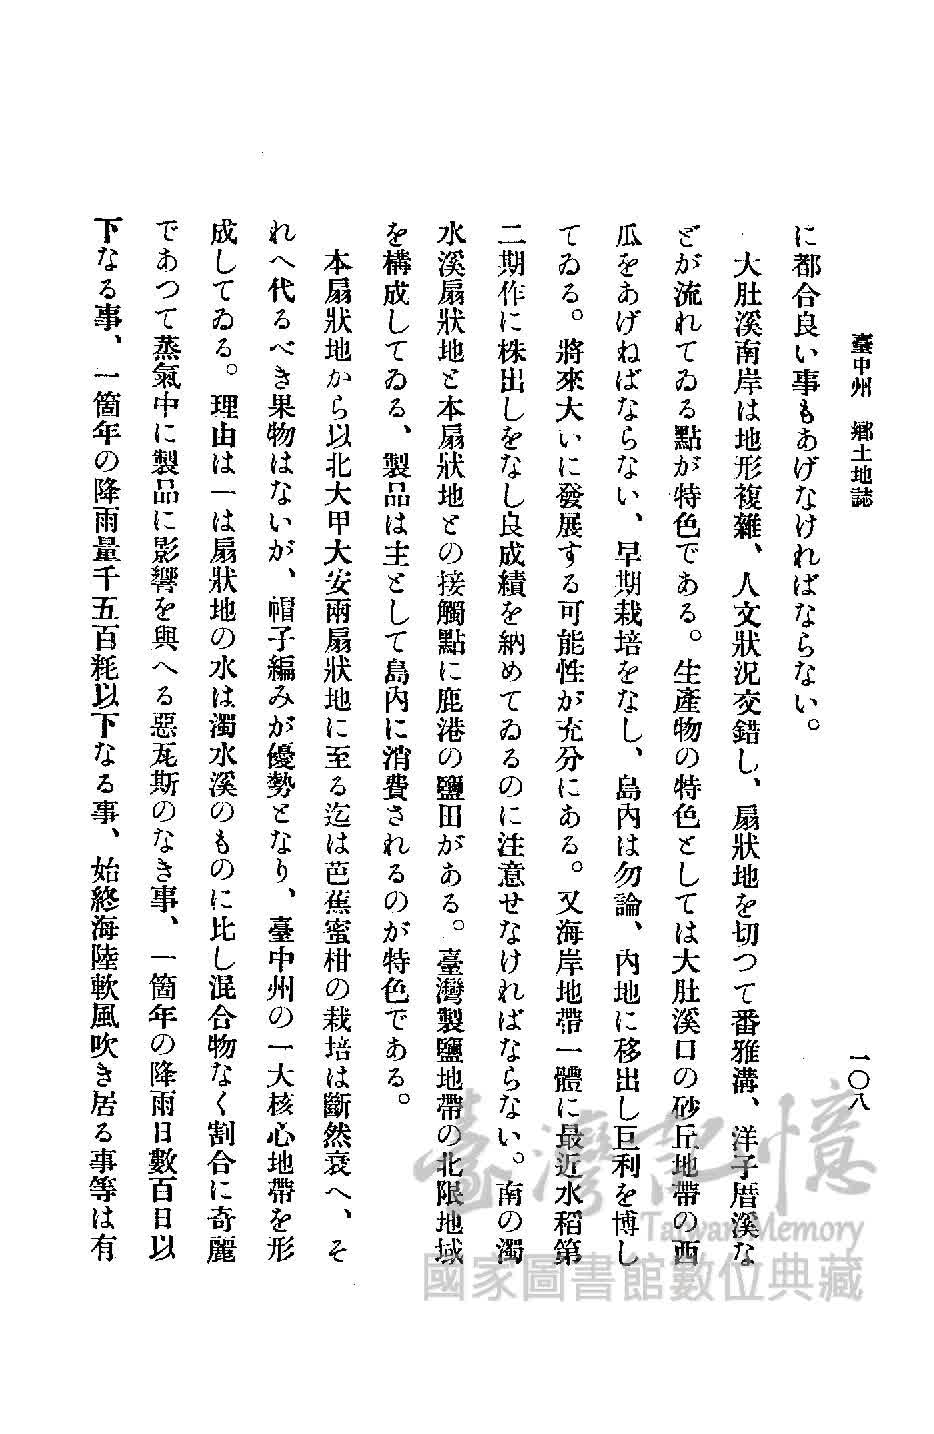 臺中州 鄕土地誌
一〇八
に都合良い事もあげなければならない。
大肚溪南岸は地形複雜、人文狀況交錯し、扇狀地を切つて番雅溝、洋子厝溪な
どが流れてゐる點が特色である。生產物の特色としては大肚溪口の砂丘地帶の西
瓜をあげねばならない、早期栽培をなし、島內は勿論、內地に移出し巨利を博し
てゐる。將來大いに發展する可能性が充分にある。又海岸地帶一體に最近水稻第
二期作に株出しをなし良成績を納めてゐるのに注意せなければならない。南の濁
水溪扇狀地と本扇狀地との接觸點に鹿港の鹽田がある。臺灣製鹽地帶の北限地域
を構成してゐる、製品は主として島內に消費されるのが特色である。
本扇狀地から以北大甲大安兩扇狀地に至る迄は芭蕉蜜柑の栽培は斷然衰へ、そ
れへ代るべき果物はないが、帽子編みが優勢となり、臺中州の一大核心地帶を形
成してゐる。理由は一は扇狀地の水は濁水溪のものに比し混合物なく割合に奇麗
であつて蒸氣中に製品に影響を與へる惡瓦斯のなき事、一箇年の降雨日數百日以
下なる事、一箇年の降雨量千五百粍以下なる事、始終海陸軟風吹き居る事等は有
臺灣記憶
Taiwan Memory
國家圖書館數位典藏